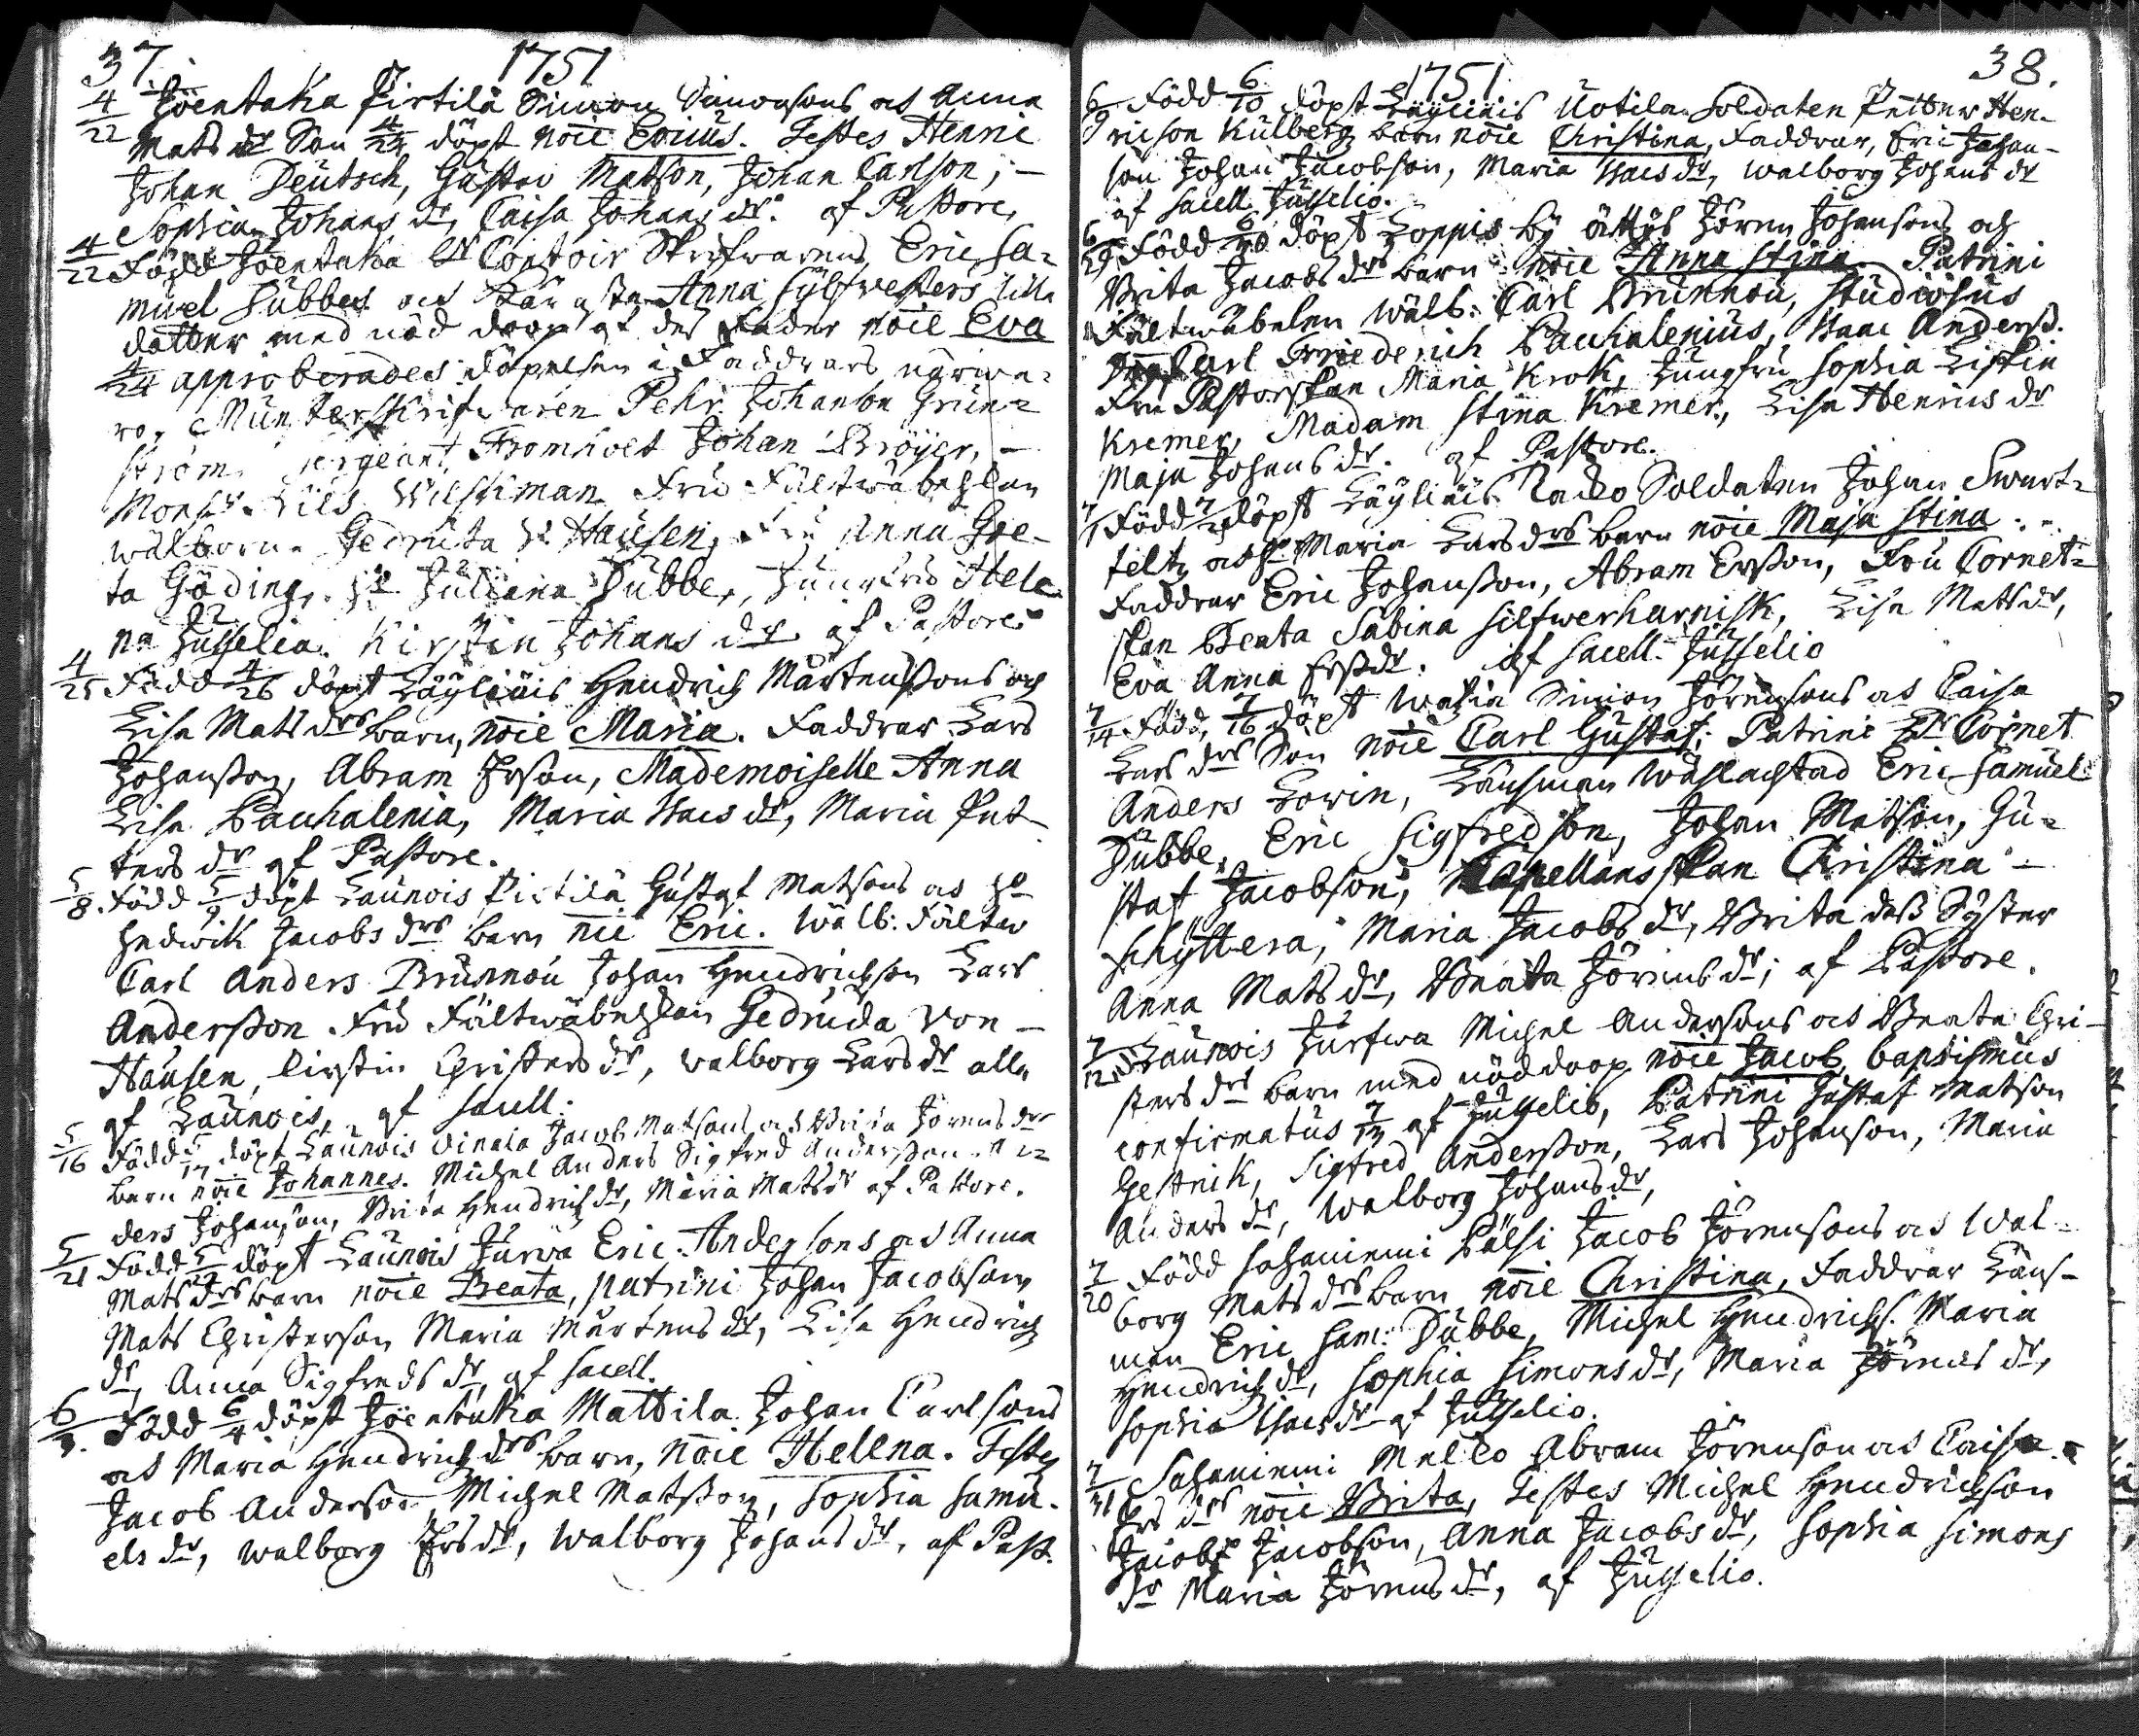 37. 1751
4/22 Jöentaka Pirtilä Simon Simonsons och Anna
Mats dr Son 4/24 döpt noie Ericus. Testes Henric
Johan Deutsch, Gustav Matson, Johan Carlson; –
Sophia Johans dr, Caisa Johans dr. af Pastore,
4/22 Född Jöentaka Hr Contoir Skrifvarens Eric Sa-
muel Dubbes och Kär Anna Sylfvesters lilla
dotter med nöd doop af des Fader noie Eva
4/24 approberades döpelsen i Faddrars närwa-
ro, Münsterskrifwaren Pehr Johanson Grün-
ström Sergeant Fromholt Johan Bröijer, –
Monsr. Nils Wilskman Fru Fältwäbelskan
wälborn. Gedruta v. Hausen, Fru Anna Gre-
ta Göding, Juliana Dubbe, Jungfru Hele-
na Juselia. Kirstin Johans dr af Pastore
4/25 Född 4/26 döpt Läyliäis Hendrich Mårtenssons och
Lisa Mats drs barn, noie Maria. Faddrar Lars
Johansson, Abram Ersson, Mademoiselle Anna
Lisa Pauhalenia, Maria Isacs dr, Maria Pet-
ters dr af Pastore.
5/8. Född 5/9 döpt Launois Pirtilä Gustaf Matsons och
Hedwik Jacobs drs barn nie Eric. Wälb: Fältw
Carl Anders Brunnou Johan Hendrichson Lars
Andersson Fru Fältwäbelskan Gedruda von –
Hausen, Cirstin Christers dr, Walborg Lars dr alla
af Launois, af Sacell:
5/16 Född 5/17 döpt Launois Vinala Jacob Matsons och Brita Jörens dr
barn noie Johannes. Michel Anders Sigfred Andersson An-
ders Johanson, Brita Hendrichs dr, Maria Mats dr af Pastore.
5/21 Född 5/22 döpt Launois Jurva Eric Andersons och Anna
Mats drs barn noie Beata, patrini Johan Jacobson
Mats Christerson Maria Mårtens dr, Lisa Hendrichs
dr, Anna Sigfreds dr af Sacell.
6/3. Född 6/4 döpt Jöentaka Mattila Johan Carlsons
och Maria Hendrichs drs barn, noie Hellena. Testes
Jacob Anderson, Michel Matsson, Sophia Samu-
els dr, Walborg Ers dr, Walborg Johans dr, af Past.
1751. 38.
6/9 Född 6/10 döpt Läyliäis Uotila Soldaten Petter Hen-
ricson Kulberg barn noie Christina, Faddrar, Eric Johan-
son Johan Jacobson, Maria Isacs dr, Walborg Johans dr
af Sacell Juselio.
6/29 Född 6/30 döpt Loppis by Jören Johansons och
Brita Jacobs drs barn noie Anna Stina. Patrini
Fältwäbelen wälb: Carl Brunnou, Studiosus
Carl Friederich Pauhalenius, Isaac Anderss.
Fru Pastorskan Maria Krok, Jungfru Sophia Lispin
Kremer, Madam Stina Kremer, Lisa Henrics dr
Maja Johans dr. af Pastore.
7/1 Född 7/2 döpt Läyliäis Racko Soldaten Johan Swart-
felts och Maria Lars drs barn noie Maja Stina.
Faddrar Eric Johansson, Abram Ersson, Fru Cornet-
skan Beata Sabina Silfwerharnisk, Lisa Mats dr,
Eva Anna Ers dr. af Sacell. Juselio
7/14 Född, 7/16 döpt Simon Jörensons och Caisa
Lars drs Son noie Carl Gustaf; Patrini Hr Cornet
Anders Lowin, Länsman Wäslachtad Eric Samuel
Dubbe, Eric Sigfredson, Johan Matson, Gu-
staf Jacobson, Kapellansskan Christina –
Schyttera, Maria Jacobs dr, Brita dess Syster
Anna Mats dr, Beata Jörens dr; af Pastore.
7/12 Launois Jurfwa Michel Andersons och Beata Chri-
sters drs barn med nöddoop noie Jacob, baptismus
confirmatus 7/13 af Juselio, Patrini Gustaf Matson
Gestrik, Sigfred Andersson, Lars Johanson, Maria
Anders dr, Walborg Johans dr,
7/20 Född Sajaniemi Pälsi Jacob Jörensons och Wal-
borg Mats drs barn noie Christina, Faddrar Läns-
man Eric Sam: Dubbe, Michel Hendrichs. Maria
Hendrichs dr, Sophia Simons dr, Maria Jörens dr,
Sophia Isacs dr af Juselio.
7/31 Sajaniemi Mello Abram Jörenson och Caisa
Ers drs noie Brita, Testes Michel Hendrichson
Jacob Jacobson, Anna Jacobs dr, Sophia Simons
dr Maria Jörens dr, af Juselio.